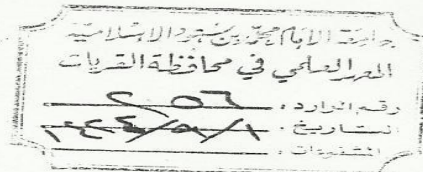 جامعة الإمام محمد بن سعود الإسلامية
المعهد العلمي في محافظة القريات
رقم الوارد : ٢٥٦
التاريخ :
المشفوعات :